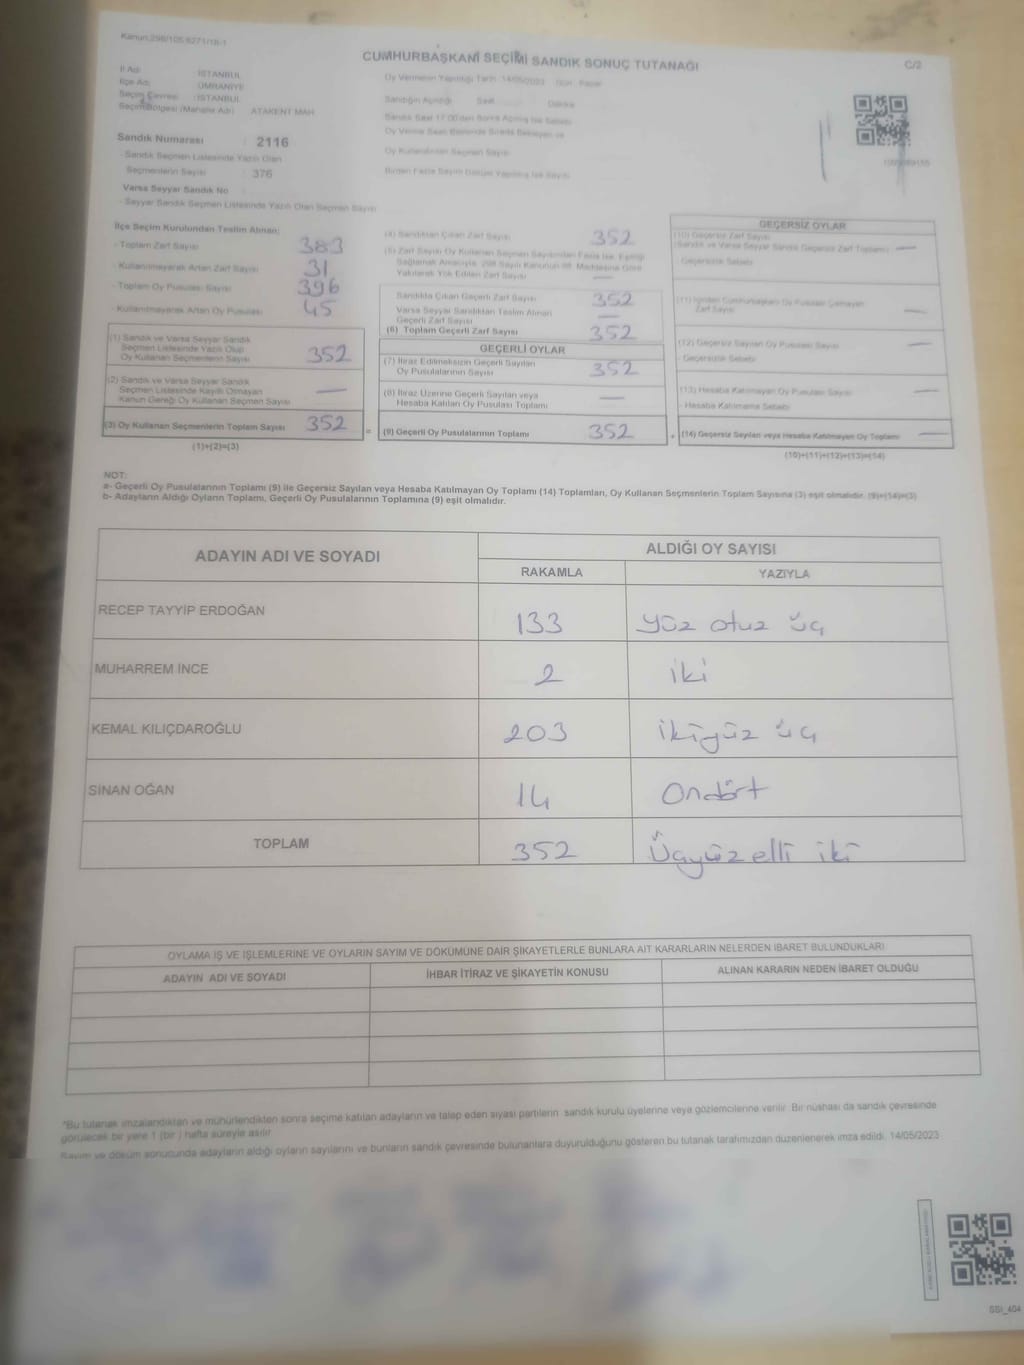 Kanun:298/105,6271/18-1
CUMHURBAŞKANI SEÇİMİ SANDIK SONUÇ TUTANAĞI
C/2
İl Adı : İSTANBUL
İlçe Adı : ÜMRANİYE
Seçim Çevresi : İSTANBUL
Seçim Bölgesi (Mahalle Adı) ATAKENT MAH
Sandık Numarası : 2116
- Sandık Seçmen Listesinde Yazılı Olan
Seçmenlerin Sayısı : 376
Varsa Seyyar Sandık No
- Seyyar Sandık Seçmen Listesinde Yazılı Olan Seçmen Sayısı
Oy Vermenin Yapıldığı Tarih :14/05/2023 Gün : Pazar
Sandığın Açıldığı Saat Dakika
Sandık Saat 17:00'den Sonra Açılmış İse Sebebi
Oy Kullandırılan Seçmen Sayısı
Birden Fazla Sayım Döküm Yapılmış İse Sayısı
İlçe Seçim Kurulundan Teslim Alınan;
- Toplam Zarf Sayısı 383
- Kullanılmayarak Artan Zarf Sayısı 31
- Toplam Oy Pusulası Sayısı 396
- Kullanılmayarak Artan Oy Pusulası 45
(1) Sandık ve Varsa Seyyar Sandık
Seçmen Listesinde Yazılı Olup
Oy Kullanan Seçmenlerin Sayısı 352
(2) Sandık ve Varsa Seyyar Sandık
Seçmen Listesinde Kayıtlı Olmayan
Kanun Gereği Oy Kullanan Seçmen Sayısı —
(3) Oy Kullanan Seçmenlerin Toplam Sayısı 352
(1)+(2)=(3)
(4) Sandıktan Çıkan Zarf Sayısı 352
(5) Zarf Sayısı Oy Kullanan Seçmen Sayısından Fazla İse, Eşitliği
Sağlamak Amacıyla, 298 Sayılı Kanunun 98. Maddesine Göre
Yakılarak Yok Edilen Zarf Sayısı —
Sandıkta Çıkan Geçerli Zarf Sayısı 352
Varsa Seyyar Sandıktan Teslim Alınan
Geçerli Zarf Sayısı —
(6) Toplam Geçerli Zarf Sayısı 352
GEÇERLİ OYLAR
(7) İtiraz Edilmeksizin Geçerli Sayılan
Oy Pusulalarının Sayısı 352
(8) İtiraz Üzerine Geçerli Sayılan veya
Hesaba Katılan Oy Pusulası Toplamı —
= (9) Geçerli Oy Pusulalarının Toplamı 352
GEÇERSİZ OYLAR
(10) Geçersiz Zarf Sayısı
(Sandık ve Varsa Seyyar Sandık Geçersiz Zarf Toplamı) —
- Geçersizlik Sebebi
(11) İçinden Cumhurbaşkanı Oy Pusulası Çıkmayan
Zarf Sayısı —
(12) Geçersiz Sayılan Oy Pusulası Sayısı —
- Geçersizlik Sebebi
(13) Hesaba Katılmayan Oy Pusulası Sayısı —
- Hesaba Katılmama Sebebi
+ (14) Geçersiz Sayılan veya Hesaba Katılmayan Oy Toplamı —
(10)+(11)+(12)+(13)=(14)
NOT:
a- Geçerli Oy Pusulalarının Toplamı (9) ile Geçersiz Sayılan veya Hesaba Katılmayan Oy Toplamı (14) Toplamları, Oy Kullanan Seçmenlerin Toplam Sayısına (3) eşit olmalıdır. (9)+(14)=(3)
b- Adayların Aldığı Oyların Toplamı, Geçerli Oy Pusulalarının Toplamına (9) eşit olmalıdır.
ADAYIN ADI VE SOYADI
ALDIĞI OY SAYISI
RAKAMLA YAZIYLA
RECEP TAYYİP ERDOĞAN 133 Yüz otuz üç
MUHARREM İNCE 2 iki
KEMAL KILIÇDAROĞLU 203 ikiyüz üç
SİNAN OĞAN 14 Ondört
TOPLAM 352 Üçyüz elli iki
OYLAMA İŞ VE İŞLEMLERİNE VE OYLARIN SAYIM VE DÖKÜMÜNE DAİR ŞİKAYETLERLE BUNLARA AİT KARARLARIN NELERDEN İBARET BULUNDUKLARI
ADAYIN ADI VE SOYADI İHBAR İTİRAZ VE ŞİKAYETİN KONUSU ALINAN KARARIN NEDEN İBARET OLDUĞU
*Bu tutanak imzalandıktan ve mühürlendikten sonra seçime katılan adayların ve talep eden siyasi partilerin sandık kurulu üyelerine veya gözlemcilerine verilir. Bir nüshası da sandık çevresinde
görülecek bir yere 1 (bir ) hafta süreyle asılır.
Sayım ve döküm sonucunda adayların aldığı oyların sayılarını ve bunların sandık çevresinde bulunanlara duyurulduğunu gösteren bu tutanak tarafımızdan düzenlenerek imza edildi. 14/05/2023
SSI_404